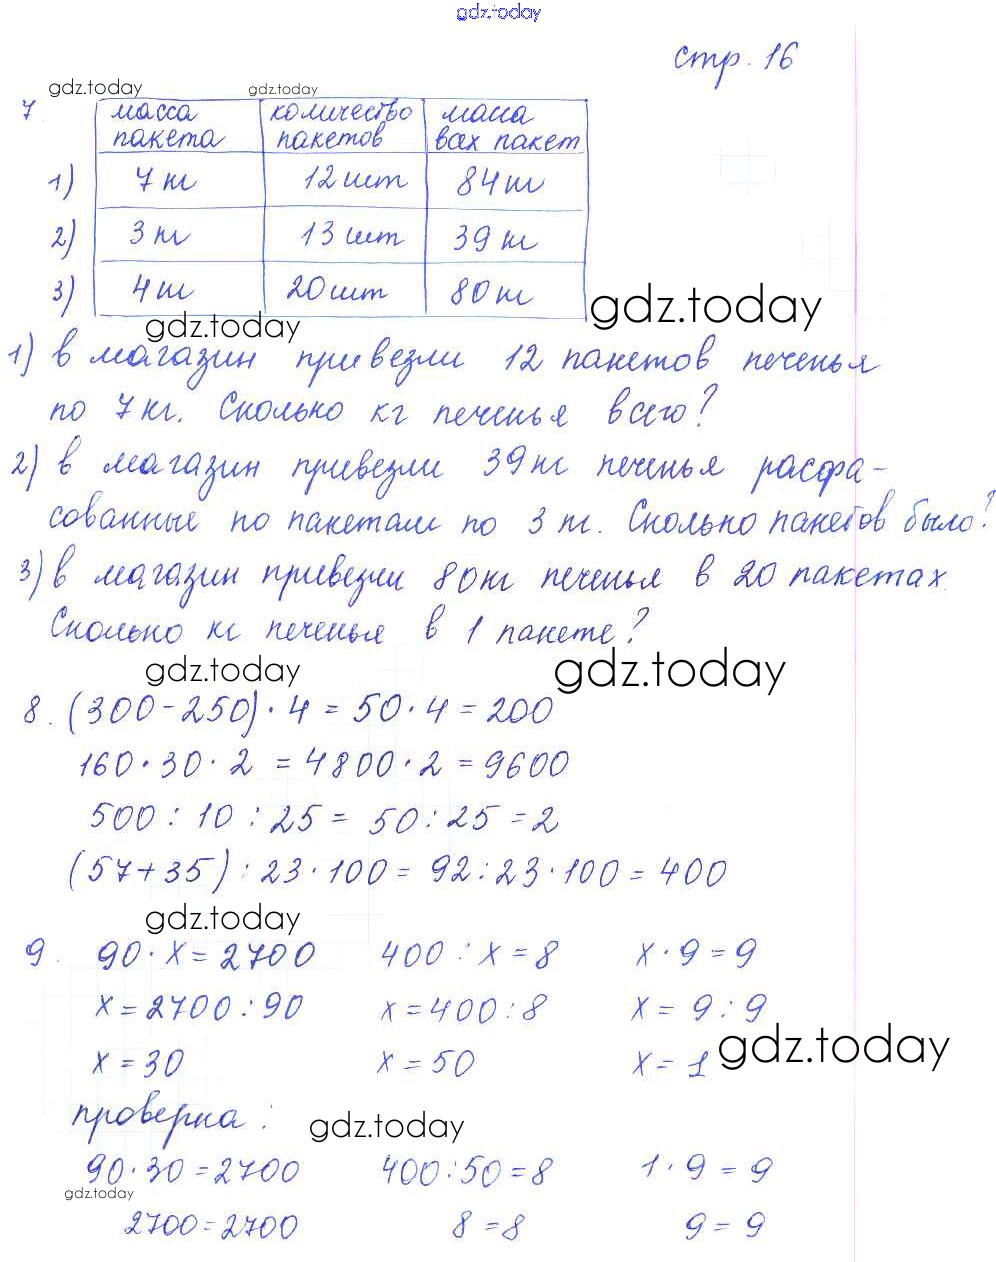 gdz.today
стр. 16
gdz.today gdz.today
7. масса количество масса
пакета пакетов всех пакет
1) 7 кг 12 шт 84 кг
2) 3 кг 13 шт 39 кг
3) 4 кг 20 шт 80 кг
gdz.today gdz.today
1) в магазин привезли 12 пакетов печенья
по 7 кг. Сколько кг печенья всего?
2) в магазин привезли 39 кг печенья расфа-
сованные по пакетам по 3 кг. Сколько пакетов было?
3) в магазин привезли 80 кг печенья в 20 пакетах.
Сколько кг печенья в 1 пакете?
gdz.today gdz.today
8. (300-250)·4=50·4=200
160·30·2=4800·2=9600
500:10:25=50:25=2
(57+35):23·100=92:23·100=400
gdz.today
9. 90·x=2700 400:x=8 x·9=9
x=2700:90 x=400:8 x=9:9
gdz.today
x=30 x=50 x=1
проверка:
gdz.today
90·30=2700 400:50=8 1·9=9
gdz.today
2700=2700 8=8 9=9